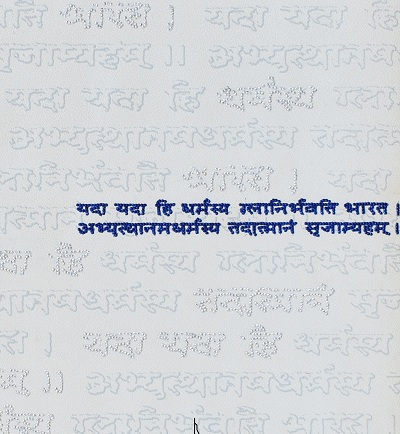 भारत । यदा यदा हि
सृजाम्यहम् ।।
यदा यदा हि धर्मस्य
अभ्युत्थानमधर्मस्य
भारत । यदा
यदा यदा हि धर्मस्य ग्लानिर्भवति भारत ।
अभ्युत्थानमधर्मस्य तदात्मानं सृजाम्यहम् ।
हि धर्मस्य ग्लानिर्भवति
तदात्मानं
। यदा यदा हि धर्मस्य
।। अभ्युत्थानमधर्मस्य
ग्लानिर्भवति भारत ।